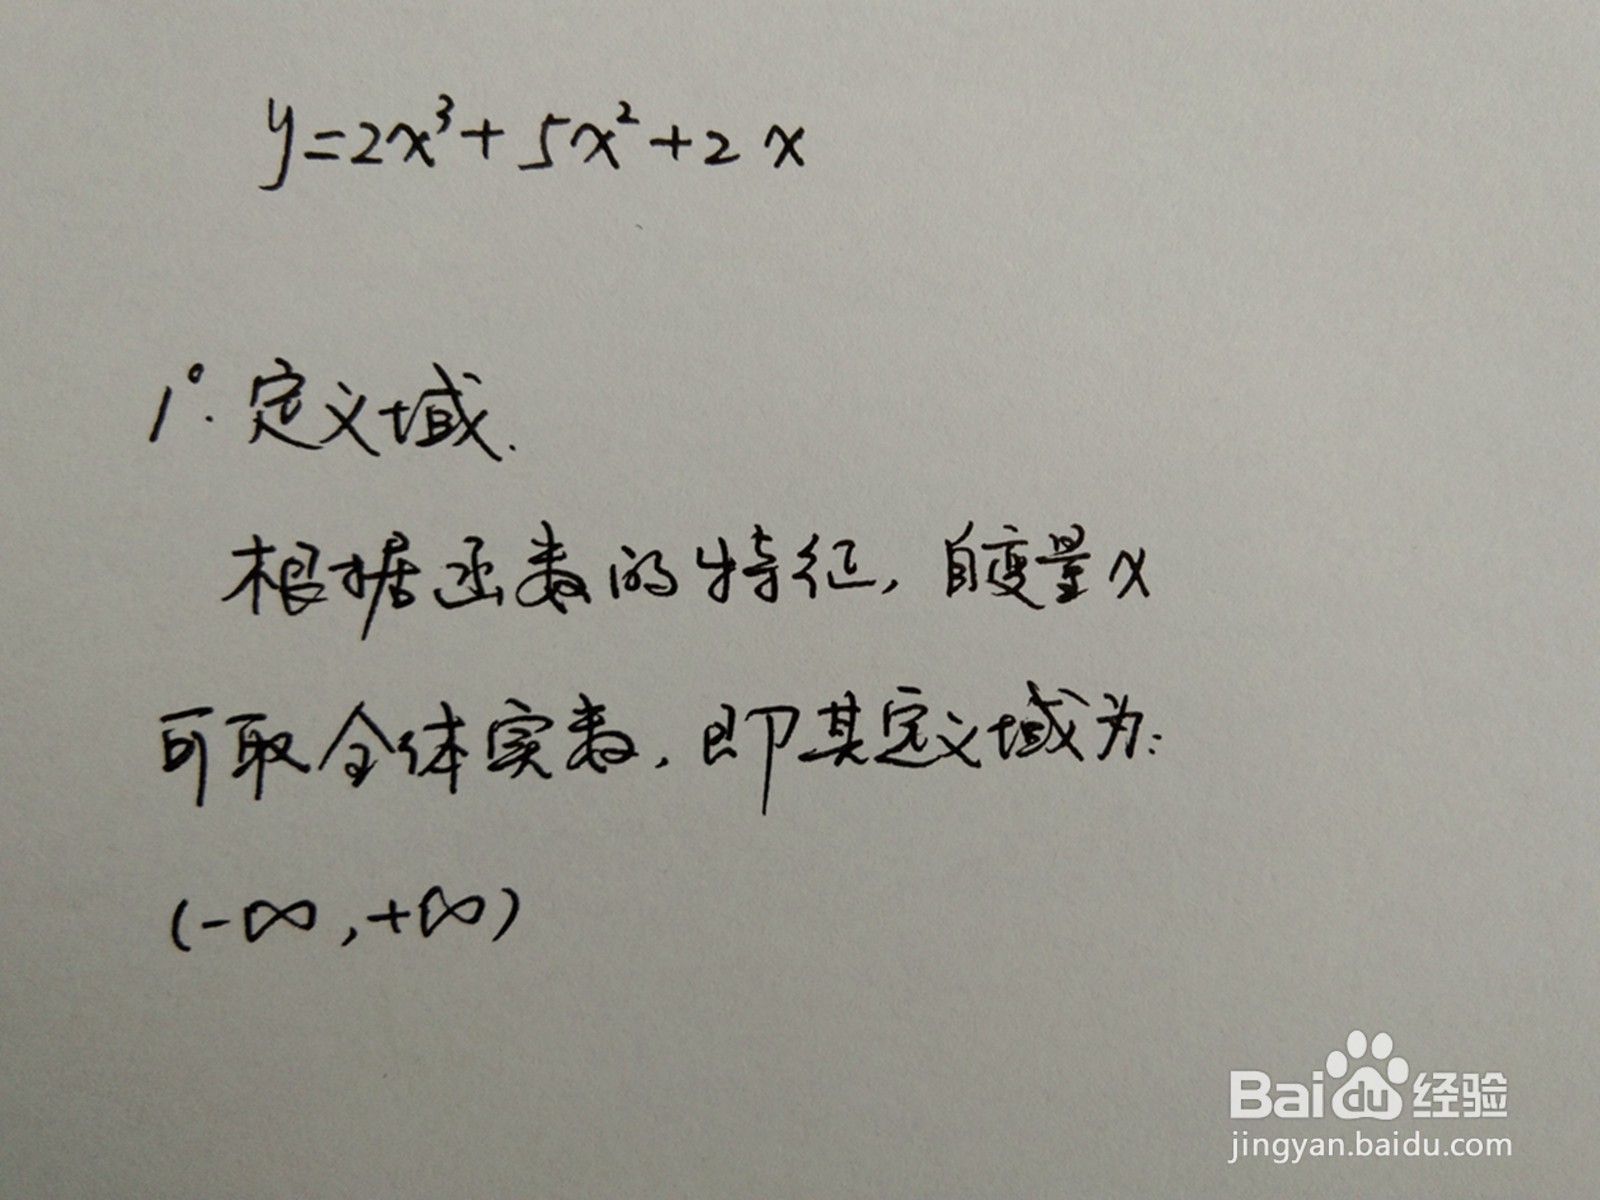 y=2x³+5x²+2x
1°.定义域.
根据函数的特征,自变量x
可取全体实数,即其定义域为:
(-∞,+∞)
Baidu经验
jingyan.baidu.com